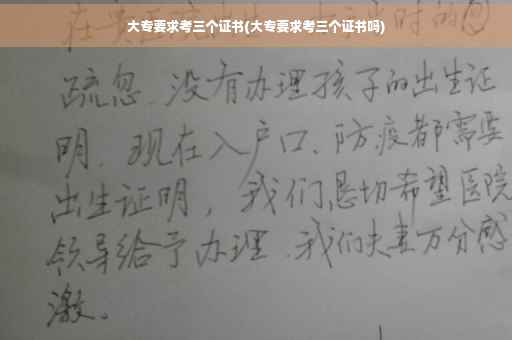 大专要求考三个证书(大专要求考三个证书吗)
疏忽、没有办理孩子的出生证
明、现在入户口、防疫都需要
出生证明，我们恳切希望医院
领导给予办理、我们夫妻万分感
激。